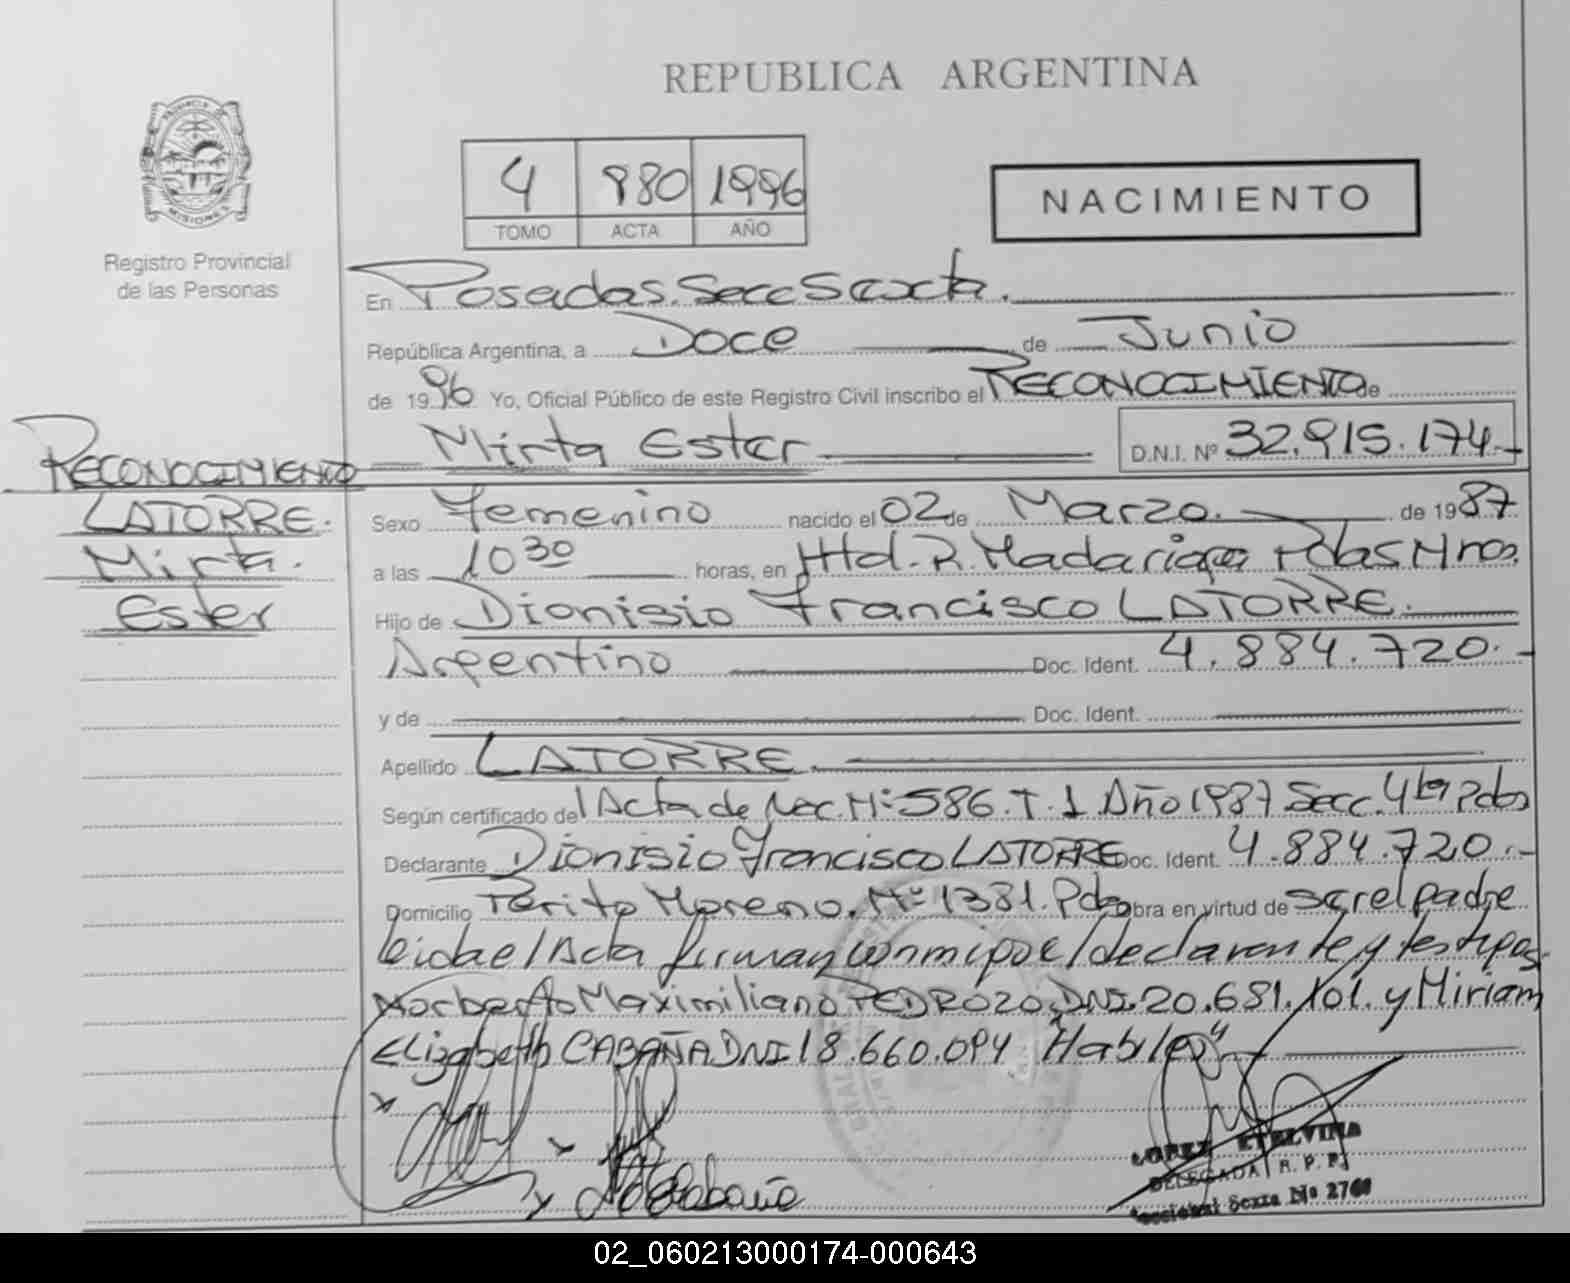 REPUBLICA ARGENTINA
PROVINCIA DE
MISIONES
Registro Provincial
de las Personas
4 880 1996
TOMO ACTA AÑO
NACIMIENTO
En Posadas. Secc Sexta.
República Argentina, a Doce de Junio
de 1996 Yo, Oficial Público de este Registro Civil inscribo el RECONOCIMIENTO de
Mirta Ester D.N.I. Nº 32.915.174.-
RECONOCIMIENTO
LATORRE.
Mirta.
Ester
Sexo Femenino nacido el 02 de Marzo. de 1987
a las 10 30 horas, en Htal. R. Madariaga Pdas Mnes.
Hijo de Dionisio Francisco LATORRE.
Argentino Doc. Ident. 4.884.720.-
y de Doc. Ident.
Apellido LATORRE.
Según certificado del Acta de Nac. Nº 586. T. 1 Año 1987 Secc. 4ta Pdas
Declarante Dionisio Francisco LATORRE Doc. Ident. 4.884.720.-
Domicilio Perito Moreno. Nº 1381. Pdas Obra en virtud de ser el padre
leida el Acta firman conmigo el declarante y testigos
Norberto Maximiliano PEDROZO, DNI. 20.681.101. y Miriam
Elizabeth CABAÑA DNI 18.660.094 Habiles
LOPEZ ETELVINA
DELEGADA R. P. P.
Seccional Sexta Nº 2760
02_060213000174-000643